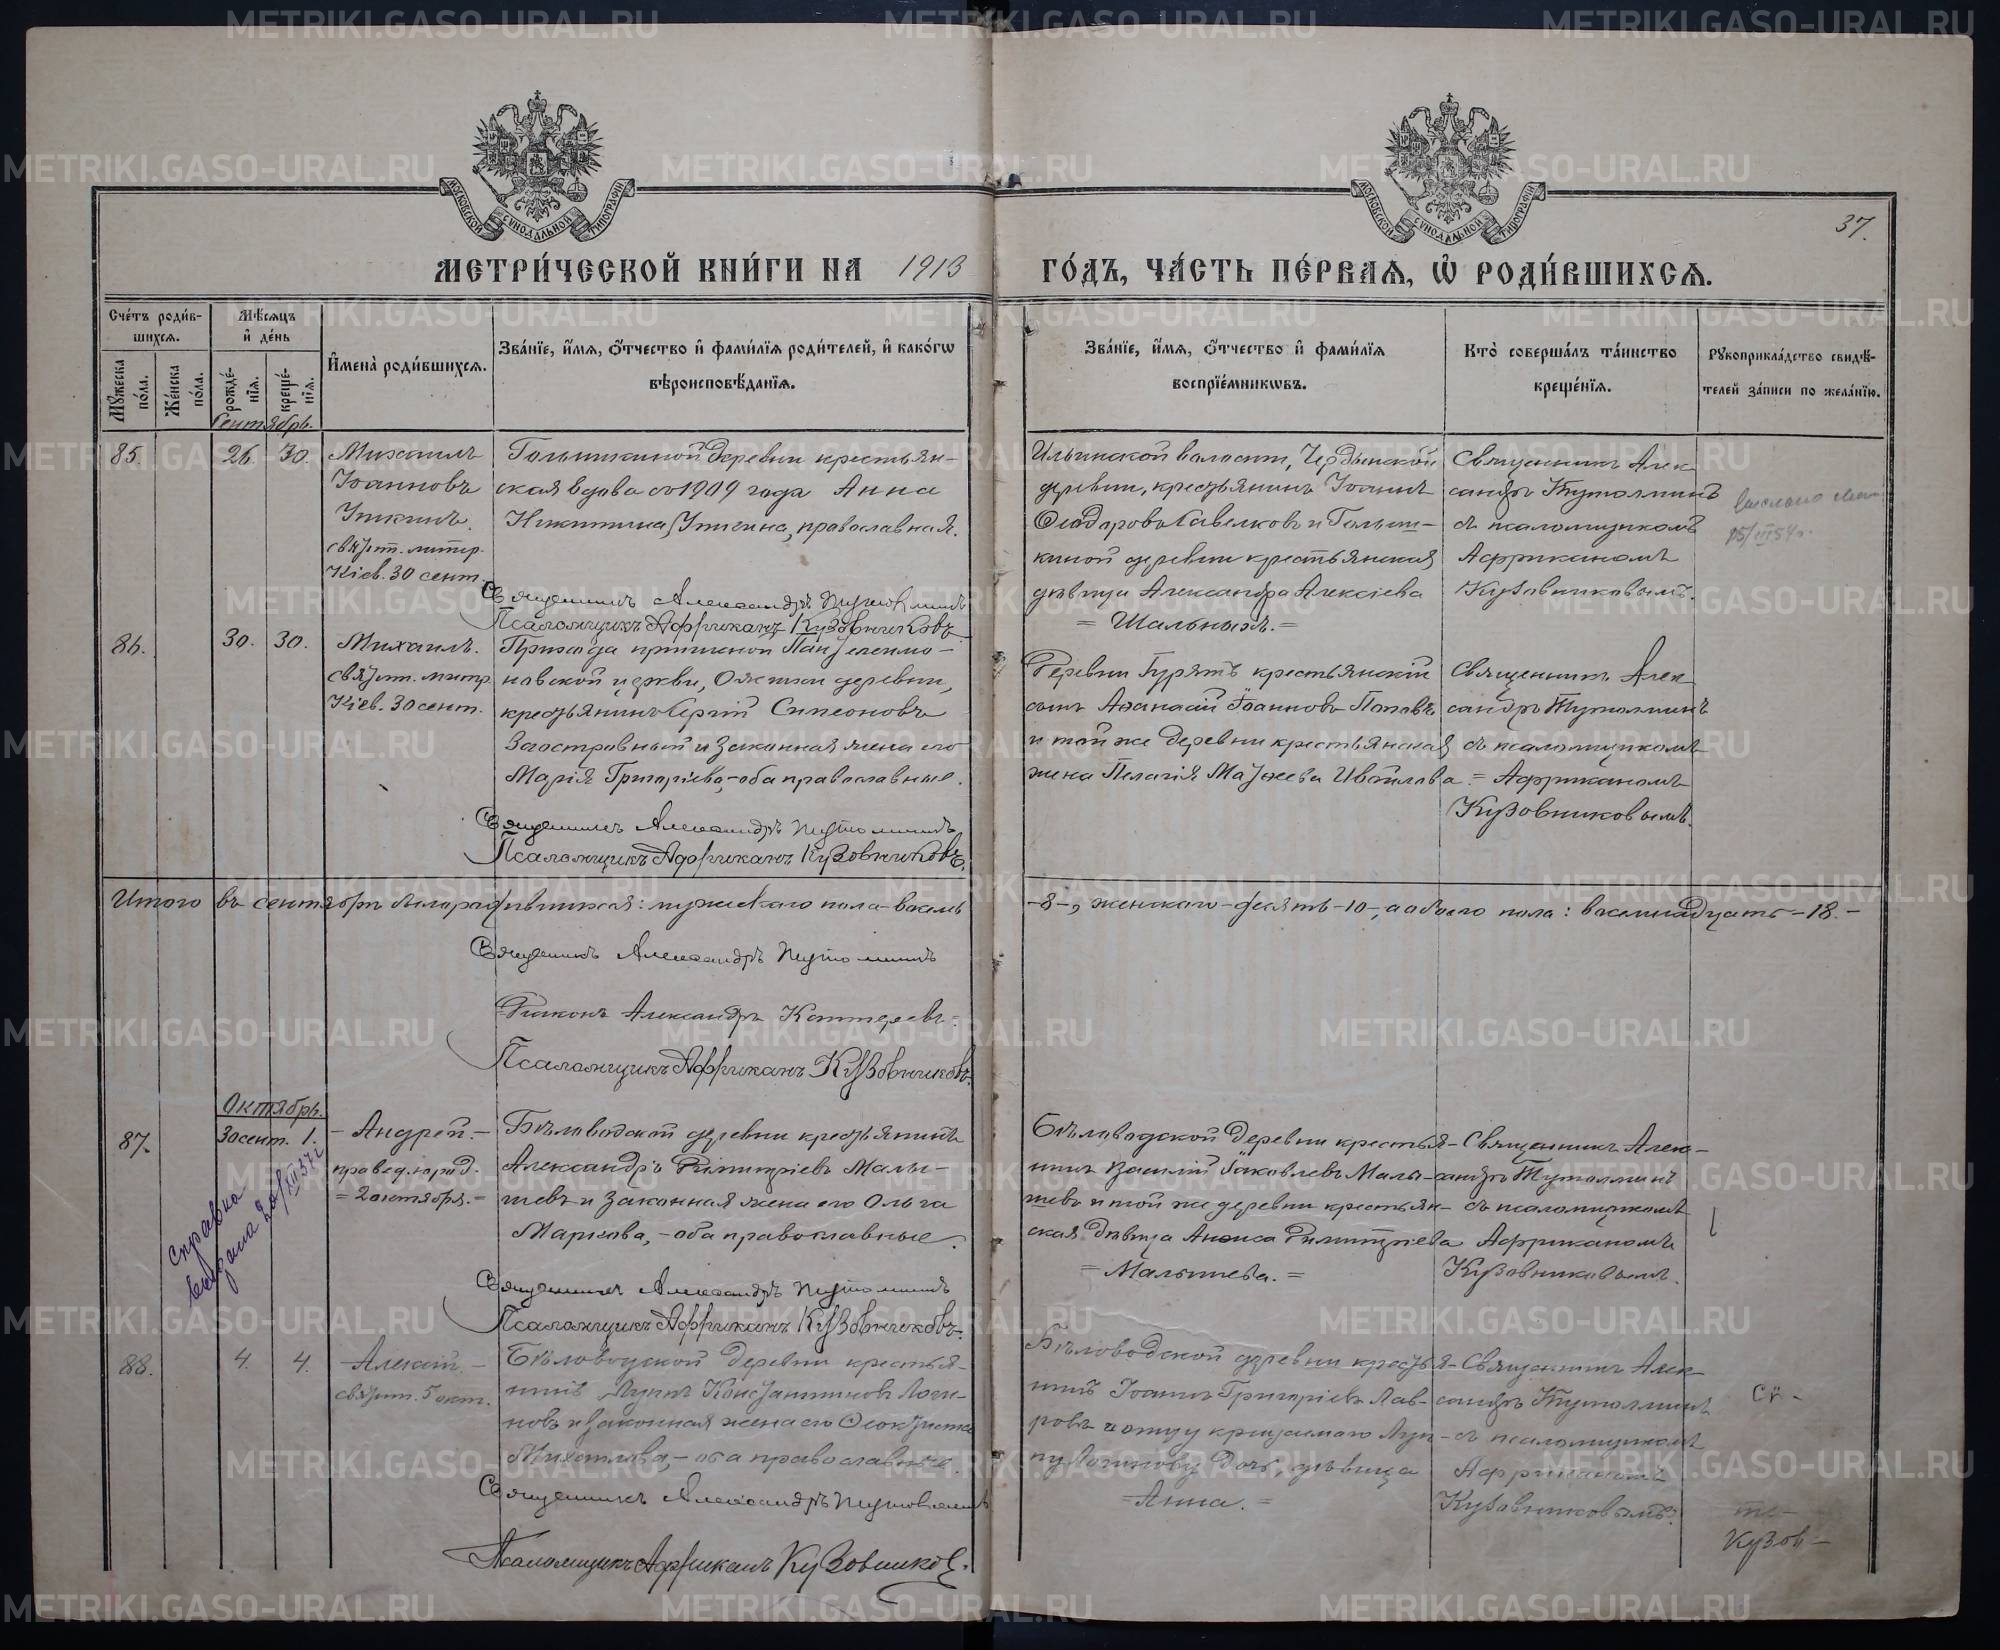 37.
МЕТРИ́ЧЕСКОЙ КНИ́ГИ НА 1913 ГО́ДЪ, ЧА́СТЬ ПЕ́РВАѦ, Ѽ РОДИ́ВШИХСѦ.
Сче́тъ роди́вшихсѧ.
Мꙋ́жеска по́ла.
Же́нска по́ла.
Мѣ́сѧцъ и҆ де́нь
рожде́нїѧ.
креще́нїѧ.
И҆мена̀ роди́вшихсѧ.
Зва́нїе, и҆́мѧ, ѻ҆́тчество и҆ фами́лїѧ роди́телей, и҆ како́гѡ
вѣроисповѣ́данїѧ.
Зва́нїе, и҆́мѧ, ѻ҆́тчество и҆ фами́лїѧ
воспрїе́мникѡвъ.
Кто̀ соверша́лъ та́инство
креще́нїѧ.
Рꙋкоприкла́дство свидѣ́-
телей за́писи по жела́нїю.
Сентябрь.
85. 26. 30.
Михаилъ
Іоанновъ
святит. митр.
Кіев. 30 сент.
деревни крестьян-
ская вдова съ 1909 года Анна
Никитина, православная.
Священникъ Александръ Тутолминъ
Псаломщикъ Африканъ Кузовниковъ.
Ильинской волости, Чердынской
деревни, крестьянинъ Іоаннъ
Ѳеодоровъ
киной деревни крестьянская
дѣвица Александра Алексіева
= Шальныхъ. =
Священникъ Алек-
сандръ Тутолминъ
съ псаломщикомъ
Африканомъ
Кузовниковымъ.
86. 30. 30.
Михаилъ.
святит. митр.
Кіев. 30 сент.
Прихода Пантелеимо-
новской церкви, деревни,
крестьянинъ Сергій Симеоновъ
и законная жена его
Марія Григоріева, - оба православные.
Священникъ Александръ Тутолминъ
Псаломщикъ Африканъ Кузовниковъ.
Деревни крестьянскій
сынъ Аѳанасій Іоанновъ Поповъ
и той же деревни крестьянская
жена Пелагія Матѳеева
Священникъ Алек-
сандръ Тутолминъ
съ псаломщикомъ
= Африканомъ
Кузовниковымъ.
Итого въ сентябрѣ родившихся: мужскаго пола - восемь
-8-, женскаго - десять -10-, а обоего пола: восемнадцать -18.-
Священникъ Александръ Тутолминъ
Діаконъ Александръ
Псаломщикъ Африканъ Кузовниковъ.
Октябрь.
87. 30 сент. 1.
- Андрей. -
= 2 октября. =
справка
выдана
Бѣловодской деревни крестьянинъ
Александръ Димитріевъ Малы-
шевъ и законная жена его Ольга
Маркова, - оба православные.
Священникъ Александръ Тутолминъ
Псаломщикъ Африканъ Кузовниковъ.
Бѣловодской деревни крестья-
нинъ Василій Іаковлевъ Малы-
шевъ и той же деревни крестьян-
ская дѣвица Анѳиса Димитріева
= Малышева. =
Священникъ Алек-
сандръ Тутолминъ
съ псаломщикомъ
Африканомъ
Кузовниковымъ.
88. 4. 4.
- Алексій. -
святит. 5 окт.
Бѣловодской деревни крестья-
нинъ Луппъ Константиновъ Логи-
новъ и законная жена его Ѳеоктиста
Михаилова, - оба православные.
Священникъ Александръ Тутолминъ
Псаломщикъ Африканъ Кузовниковъ.
Бѣловодской деревни крестья-
нинъ Іоаннъ Григоріевъ Лав-
ровъ и отцу крещаемаго Луп-
пу Логинову дочь, дѣвица
= Анна. =
Священникъ Алек-
сандръ Тутолминъ
съ псаломщикомъ
Африканомъ
Кузовниковымъ.
Кузов-
METRIKI.GASO-URAL.RU